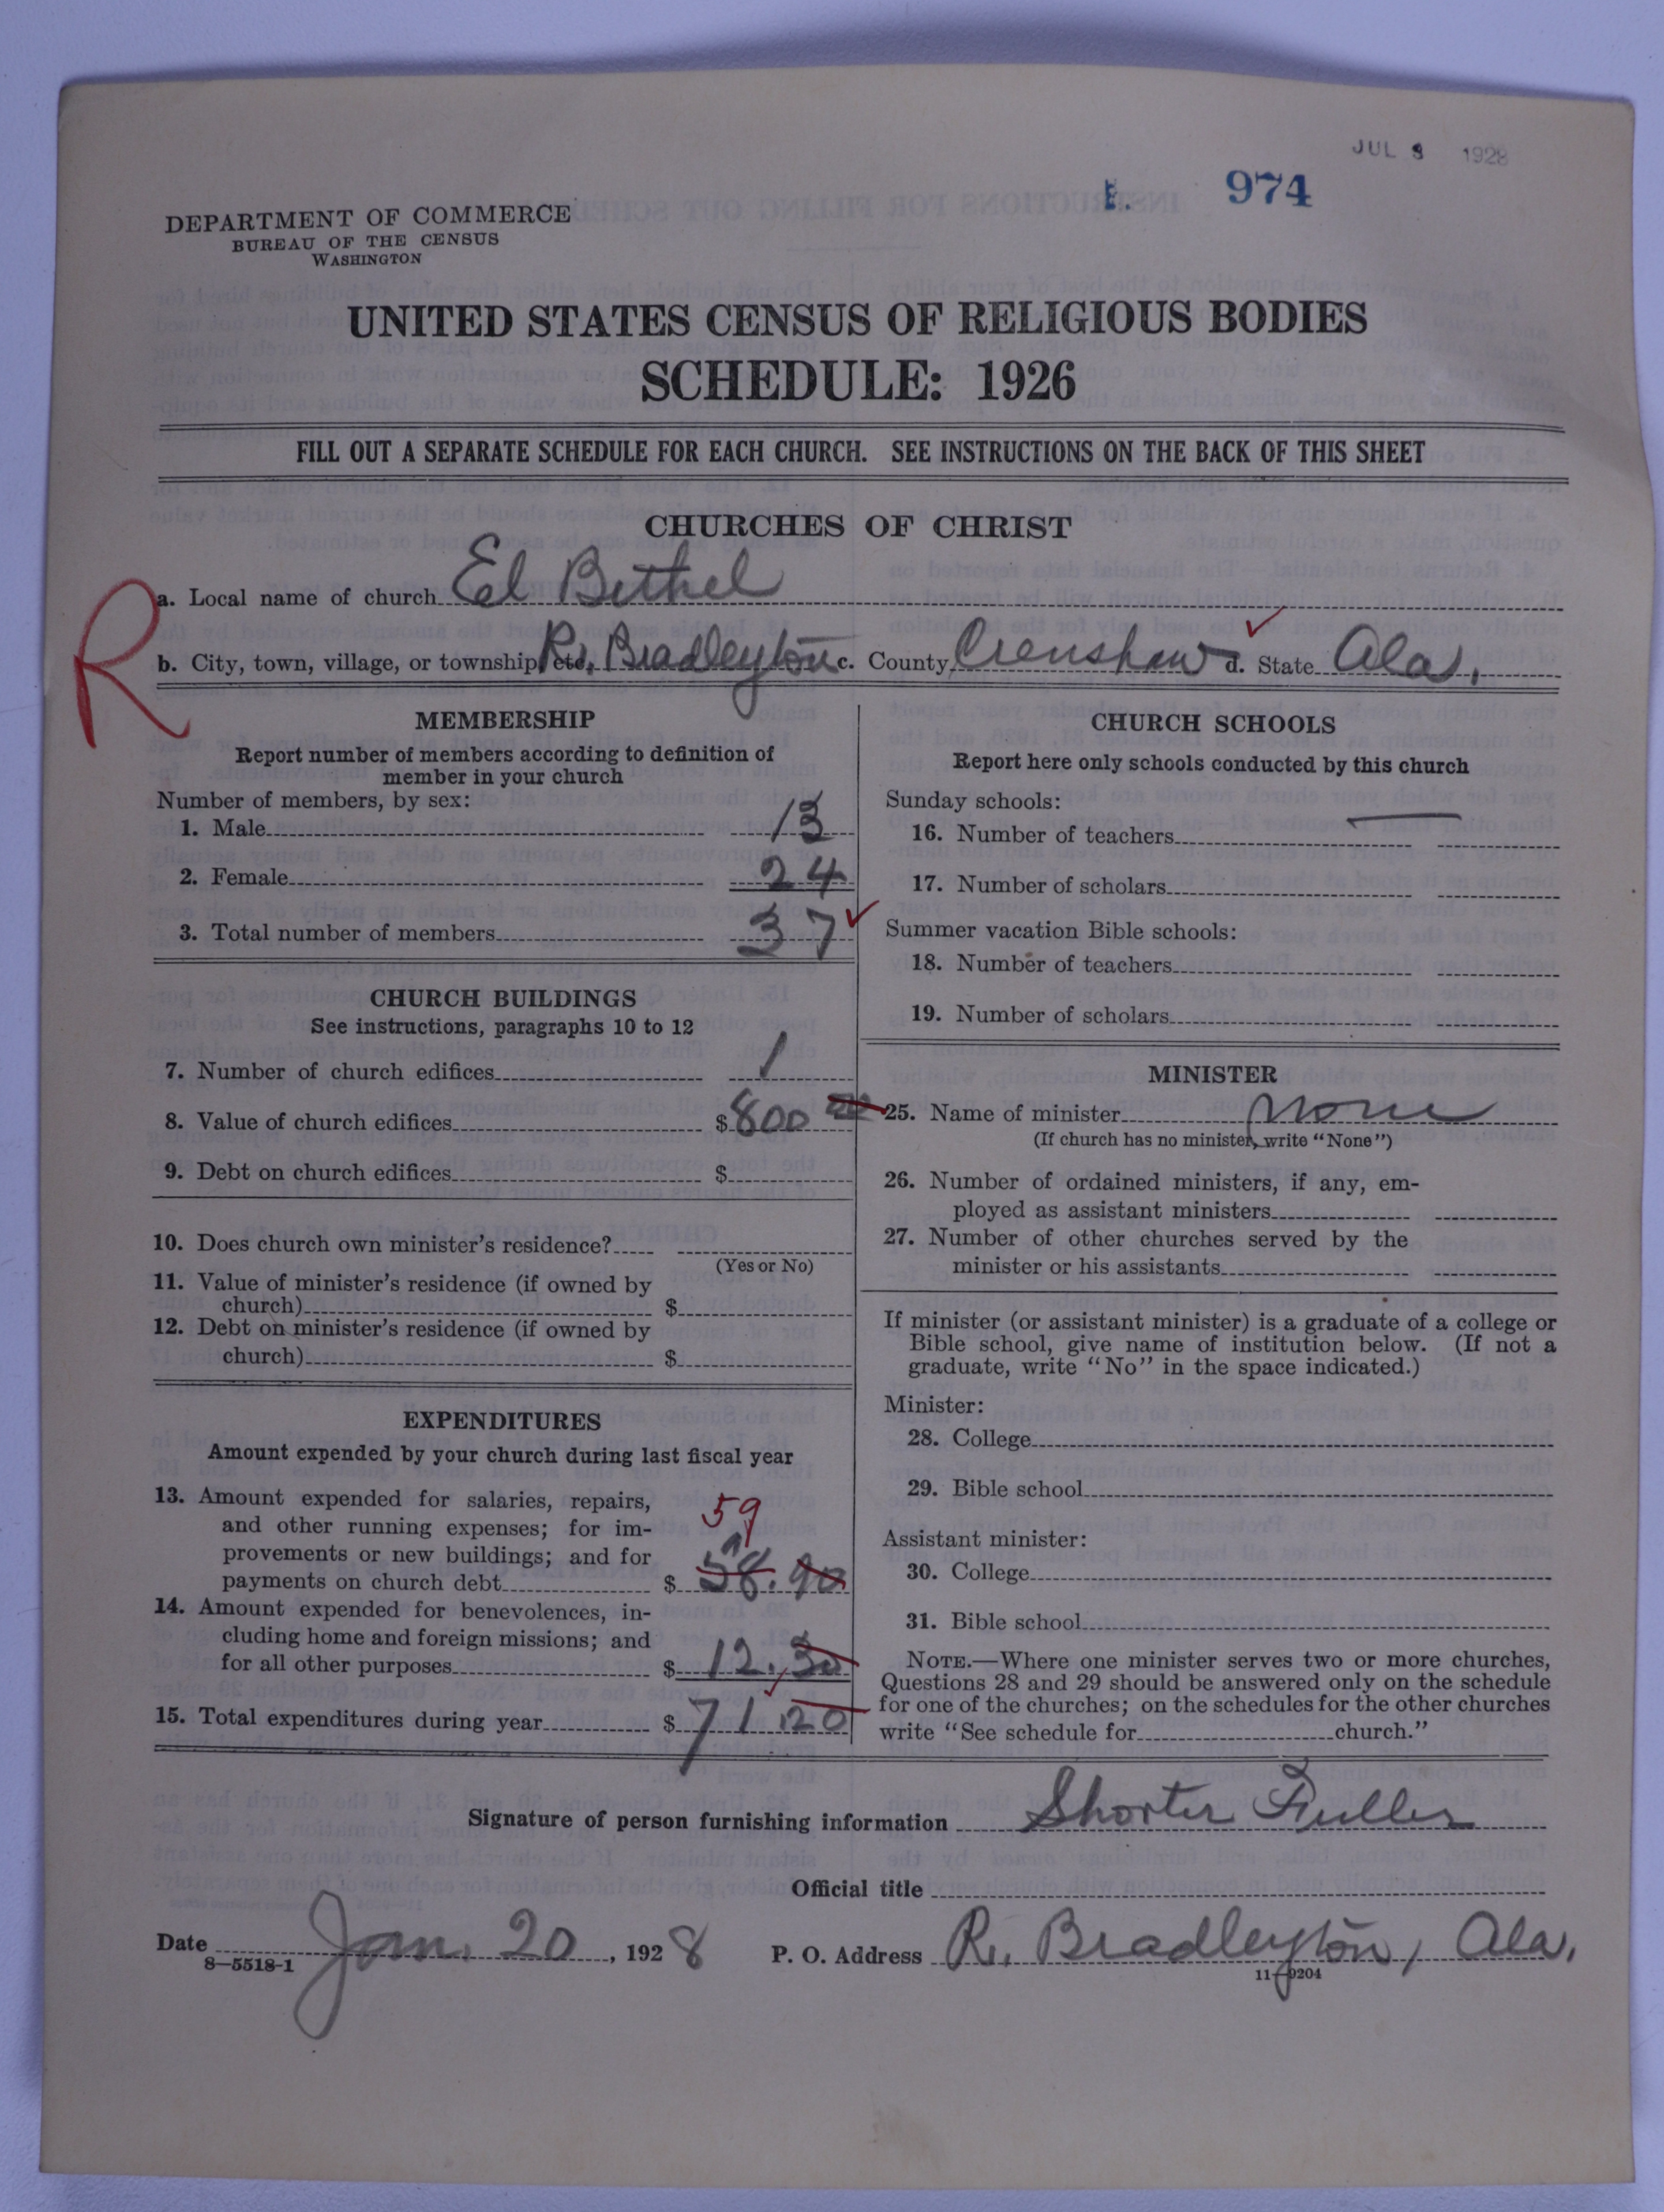 JUL 9 1928
E. 974
DEPARTMENT OF COMMERCE
BUREAU OF THE CENSUS
WASHINGTON
UNITED STATES CENSUS OF RELIGIOUS BODIES
SCHEDULE: 1926
FILL OUT A SEPARATE SCHEDULE FOR EACH CHURCH. SEE INSTRUCTIONS ON THE BACK OF THIS SHEET
CHURCHES OF CHRIST
R
a. Local name of church El Bethel
b. City, town, village, or township, etc. R. Bradleyton c. County Crenshaw d. State Ala.
MEMBERSHIP
Report number of members according to definition of
member in your church
Number of members, by sex:
1. Male 13
2. Female 24
3. Total number of members 37
CHURCH BUILDINGS
See instructions, paragraphs 10 to 12
7. Number of church edifices 1
8. Value of church edifices $ 800
9. Debt on church edifices $
10. Does church own minister's residence?
(Yes or No)
11. Value of minister's residence (if owned by
church) $
12. Debt on minister's residence (if owned by
church) $
EXPENDITURES
Amount expended by your church during last fiscal year
13. Amount expended for salaries, repairs,
and other running expenses; for im-
59
provements or new buildings; and for
payments on church debt $ 58.90
14. Amount expended for benevolences, in-
cluding home and foreign missions; and
for all other purposes $ 12.30
15. Total expenditures during year $ 71.20
CHURCH SCHOOLS
Report here only schools conducted by this church
Sunday schools:
16. Number of teachers
17. Number of scholars
Summer vacation Bible schools:
18. Number of teachers
19. Number of scholars
MINISTER
25. Name of minister none
(If church has no minister, write "None")
26. Number of ordained ministers, if any, em-
ployed as assistant ministers
27. Number of other churches served by the
minister or his assistants
If minister (or assistant minister) is a graduate of a college or
Bible school, give name of institution below. (If not a
graduate, write "No" in the space indicated.)
Minister:
28. College
29. Bible school
Assistant minister:
30. College
31. Bible school
NOTE.—Where one minister serves two or more churches,
Questions 28 and 29 should be answered only on the schedule
for one of the churches; on the schedules for the other churches
write "See schedule for church."
Signature of person furnishing information Shorter Fuller
Official title
Date Jan. 20, 1928 P. O. Address R. Bradleyton, Ala.
8—5518-1
11—9204